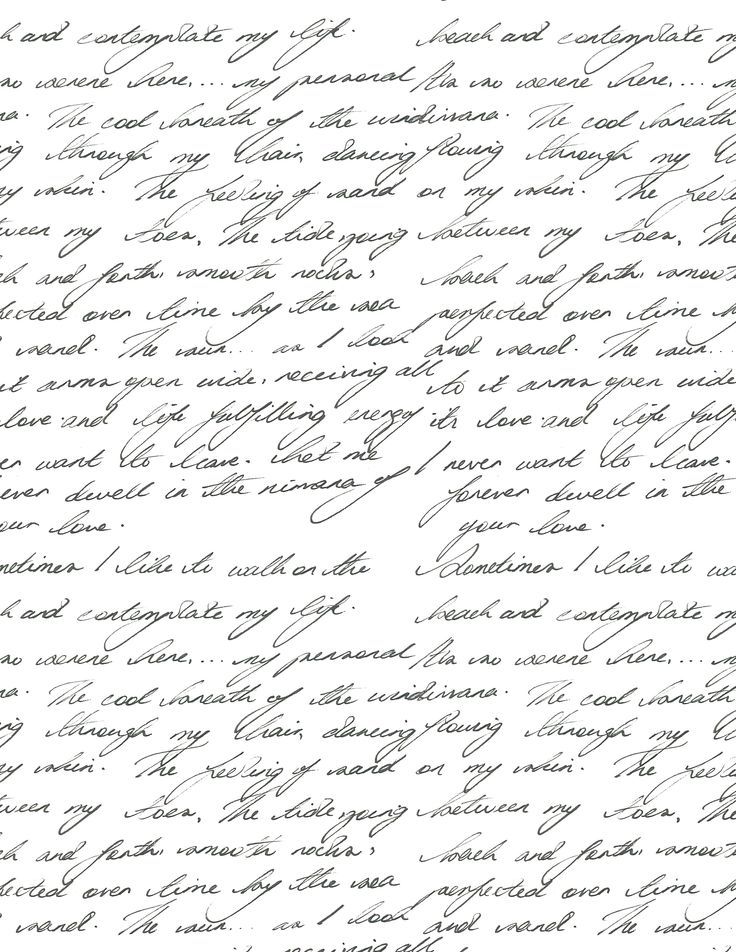 h and contemplate my life. beach and contemplate my
so serene here.... my personal Its so serene here....
na. The cool breath of the wind nirvana. The cool breath
ng through my hair, dancing flowing through my
my skin. The feeling of sand on my skin. The
tween my toes, The tide going between my toes, The
ch and forth, smooth rocks, back and forth, smooth
fected over time by the sea perfected over time
sand. The sun... as I look and sand. The sun...
it arms open wide, receiving all to it arms open wide
love and life fulfilling energy its love and life
er want to leave. Let me I never want to leave.
ever dwell in the nirvana of forever dwell in the
our love. your love.
metimes I like to walk on the Sometimes I like to wa
h and contemplate my life. beach and contemplate my
so serene here.... my personal Its so serene here....
na. The cool breath of the wind nirvana. The cool breath
ng through my hair, dancing flowing through my
my skin. The feeling of sand on my skin. The
tween my toes, The tide going between my toes, The
ch and forth, smooth rocks, back and forth, smooth
fected over time by the sea perfected over time
sand. The sun... as I look and sand. The sun...
receiving all